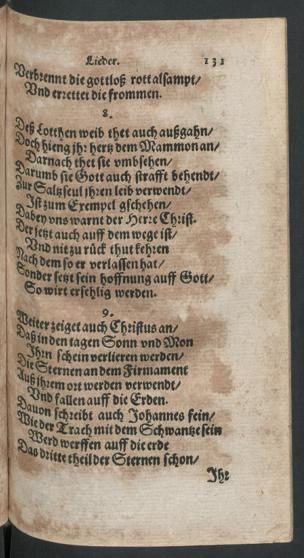 Lieder. 131
Verbrennt die gottloß rott alsampt/
Vnd errettet die frommen.
8.
Deß Lotthen weib thet auch außgahn/
Doch hieng jhr hertz dem Mammon an/
Darnach thet sie vmbsehen/
Darumb sie Gott auch strafft behendt/
Zur Saltzseul jhren leib verwendt/
Ist zum Exempel gschehen/
Dabey vns warnt der Herre Christ.
Der jetzt auch auff dem wege ist/
Vnd nit zu rück thut kehren
Nach dem so er verlassen hat/
Sonder setzt sein hoffnung auff Gott/
So wirt er sehlig werden.
9.
Weiter zeiget auch Christus an/
Daß in den tagen Sonn vnd Mon
Ihrn schein verlieren werden/
Die Sternen an dem Firmament
Auß jhrem ort werden verwendt/
Vnd fallen auff die Erden.
Dauon schreibt auch Johannes fein/
Wie der Trach mit dem Schwantze sein
Werd werffen auff die erde
Das dritte theil der Sternen schon/
Ihr